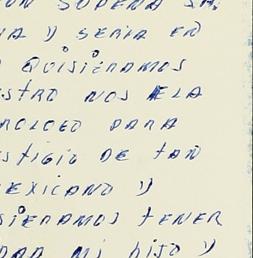 ON SOPENA SA.
A Y SERIA EN
QUISIERAMOS
STRO NOS ELA
ROLOGO PARA
STIGIO DE TAN
EXICANO Y
SIERAMOS TENER
PARA MI HIJO Y